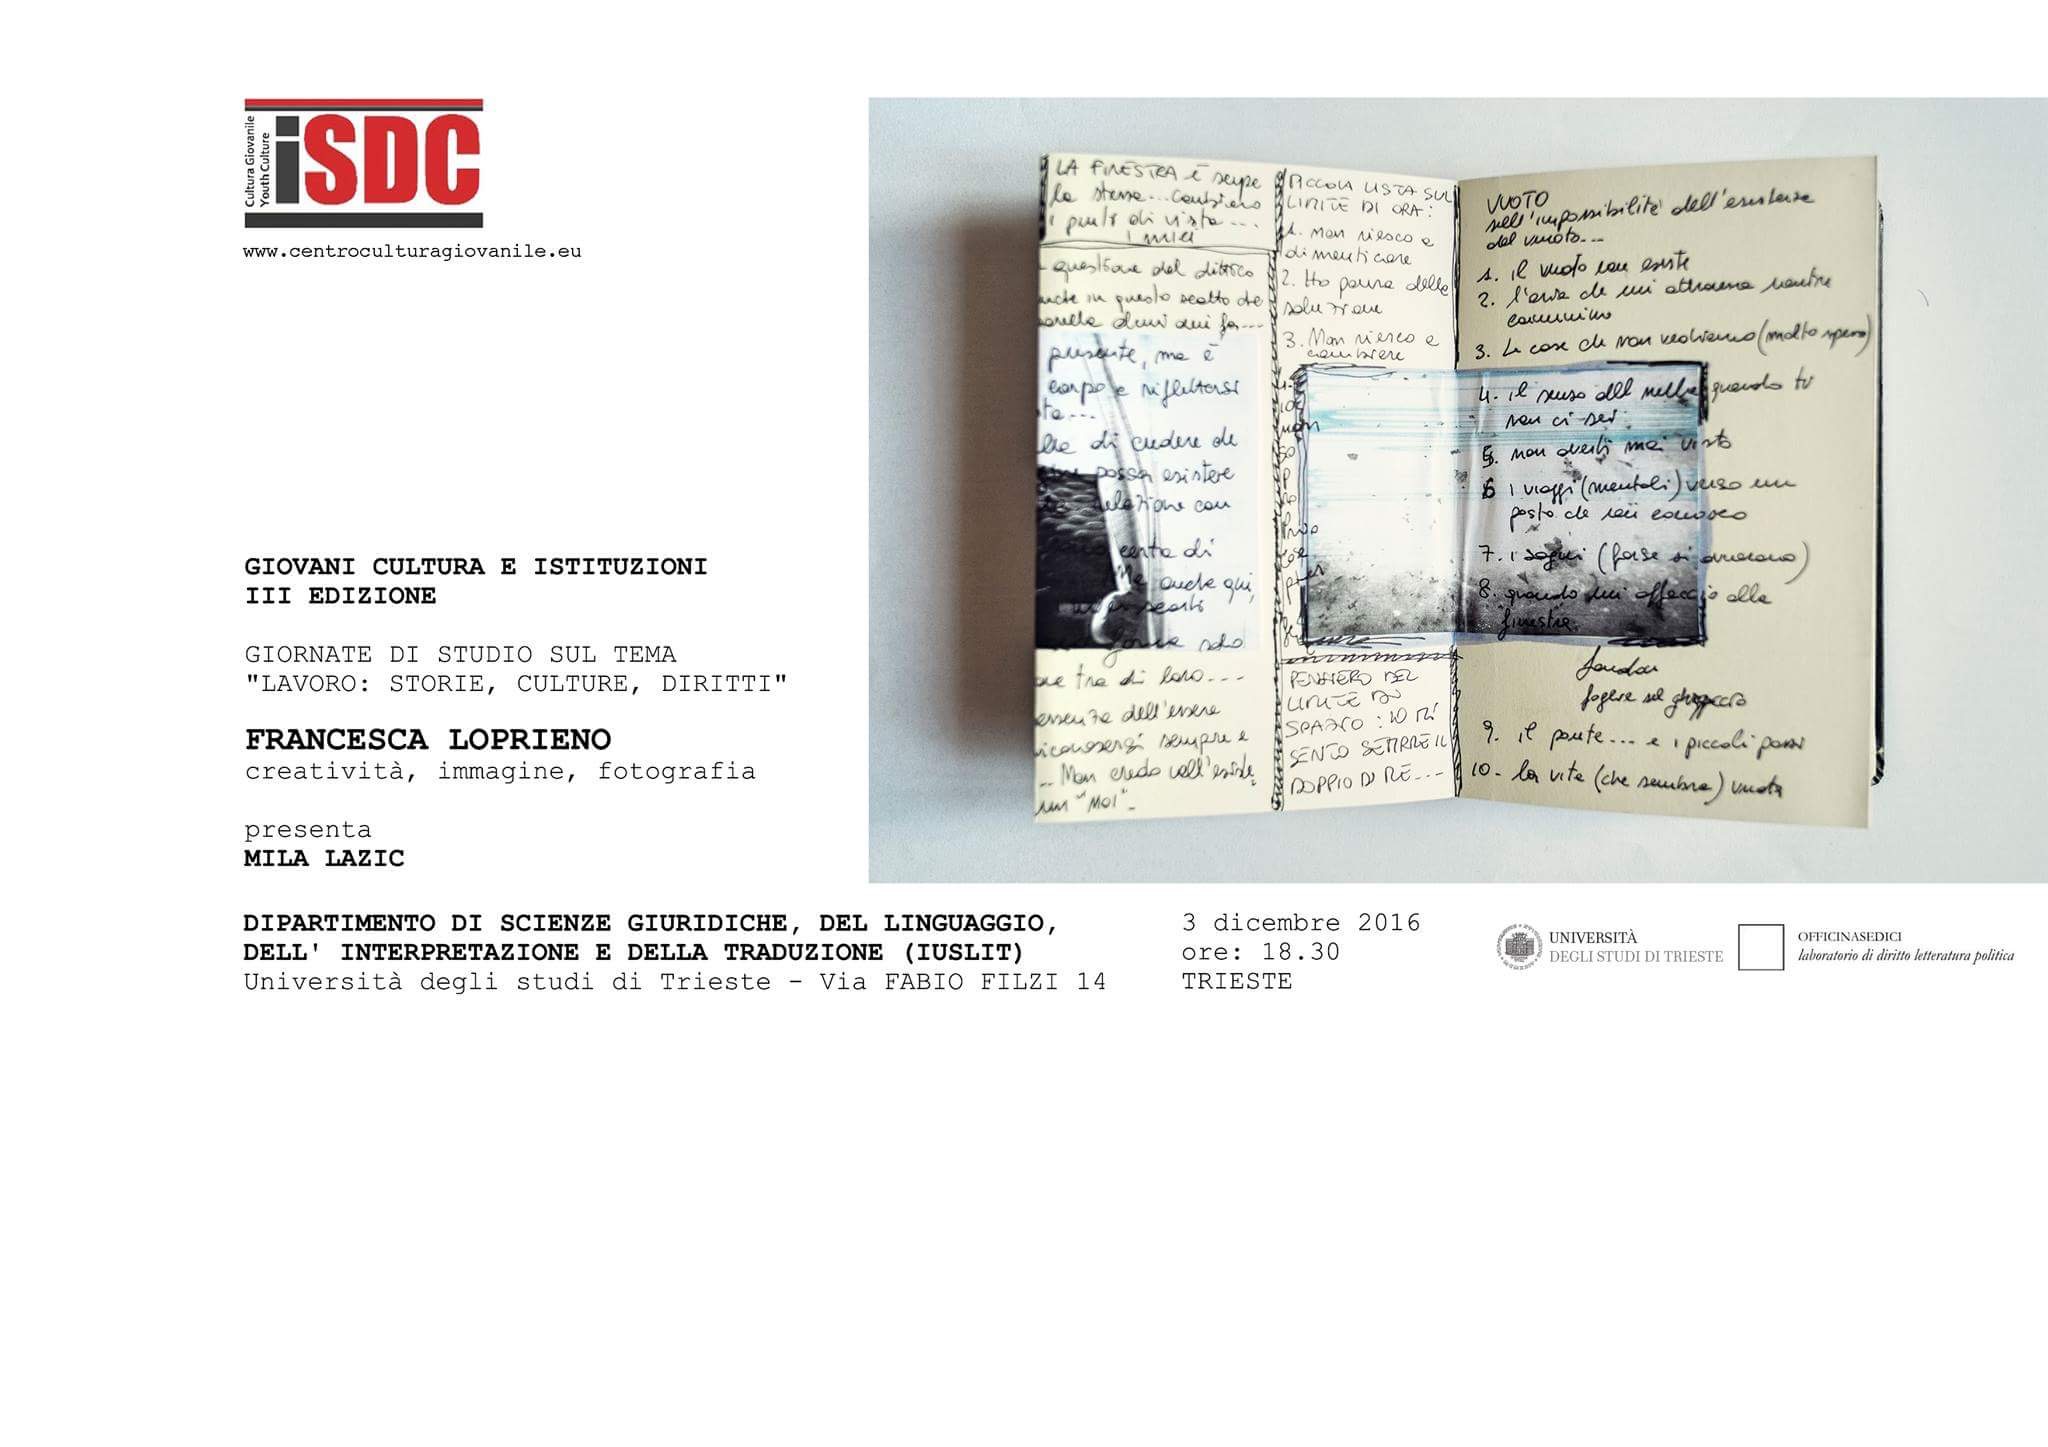 Cultura Giovanile
Youth Culture
iSDC
www.centroculturagiovanile.eu
GIOVANI CULTURA E ISTITUZIONI
III EDIZIONE
GIORNATE DI STUDIO SUL TEMA
"LAVORO: STORIE, CULTURE, DIRITTI"
FRANCESCA LOPRIENO
creatività, immagine, fotografia
presenta
MILA LAZIC
DIPARTIMENTO DI SCIENZE GIURIDICHE, DEL LINGUAGGIO,
DELL' INTERPRETAZIONE E DELLA TRADUZIONE (IUSLIT)
Università degli studi di Trieste - Via FABIO FILZI 14
3 dicembre 2016
ore: 18.30
TRIESTE
UNIVERSITÀ
DEGLI STUDI DI TRIESTE
OFFICINASEDICI
laboratorio di diritto letteratura politica
LA FINESTRA è sempre
la stessa... cambiano
i punti di vista...
i miei
questione del dittico
anche in questo scatto che
presente, ma è
corpo e riflettersi
di credere che
possa esistere
relazione con
certa di
anche qui,
forma solo
tra di loro...
essenza dell'essere
riconoscersi sempre e
... Non credo nell'esiste
un "MOI".
PICCOLA LISTA SUL
LIMITE DI ORA:
1. Non riesco a
dimenticare
2. Ho paura della
soluzione
3. Non riesco a
cambiare
PENSIERO DEL
LIMITE DI
SPAZIO: IO MI
SENTO SEMPRE IL
DOPPIO DI ME...
VUOTO
sull'impossibilità dell'esistenza
del vuoto...
1. il vuoto non esiste
2. l'aria che mi attraversa mentre
cammino
3. Le cose che non vediamo (molto spesso)
4. il senso del nulla quando tu
non ci sei
5. non averti mai visto
6 i viaggi (mentali) verso un
posto che non conosco
7. i sogni (forse si avverano)
8. quando mi affaccio alla
finestra
foglie sul
9. il ponte... e i piccoli passi
10- la vita (che sembra) vuota